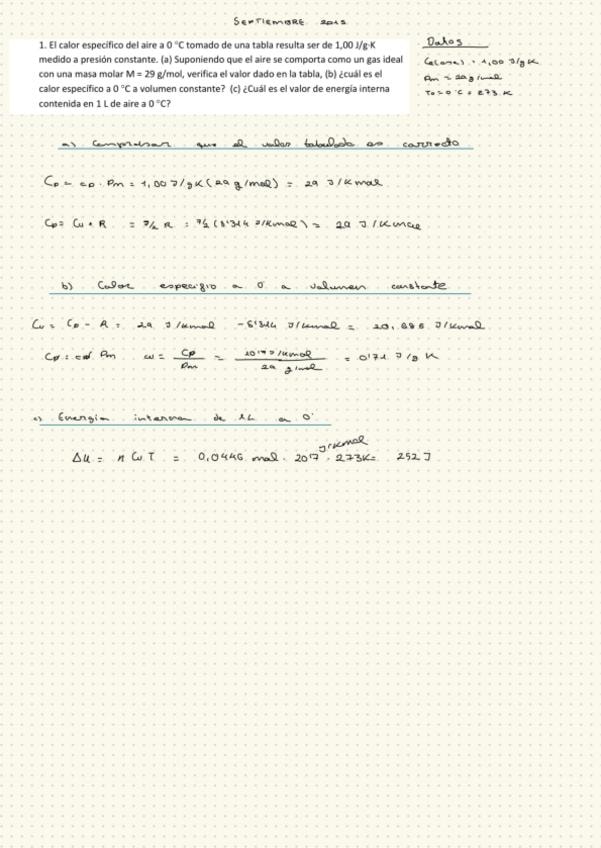 SEPTIEMBRE 2012
1. El calor específico del aire a 0 °C tomado de una tabla resulta ser de 1,00 J/g·K
medido a presión constante. (a) Suponiendo que el aire se comporta como un gas ideal
con una masa molar M = 29 g/mol, verifica el valor dado en la tabla, (b) ¿cuál es el
calor específico a 0 °C a volumen constante? (c) ¿Cuál es el valor de energía interna
contenida en 1 L de aire a 0 °C?
Datos
= 1,00 J/gK
Pm = 29 g/mol
To = 0°C = 273 K
a) Comprobar que el valor tabulado es correcto
Cp = cp · Pm = 1,00 J/gK (29 g/mol) = 29 J/Kmol
Cp = Cv + R = 7/2 R = 7/2 (8'314 J/Kmol) = 29 J/Kmol
b) Calor especifio a 0 a volumen constante
Cv = Cp - R = 29 J/Kmol - 8'314 J/Kmol = 20,686 J/Kmol
Pm = Cp / Pm = J/Kmol / 29 g/mol = 0'71 J/g K
c) Energia interna de 1L a 0°
ΔU = n Cv T = 0,0446 mol · 20'7 J/Kmol · 273K = 252 J